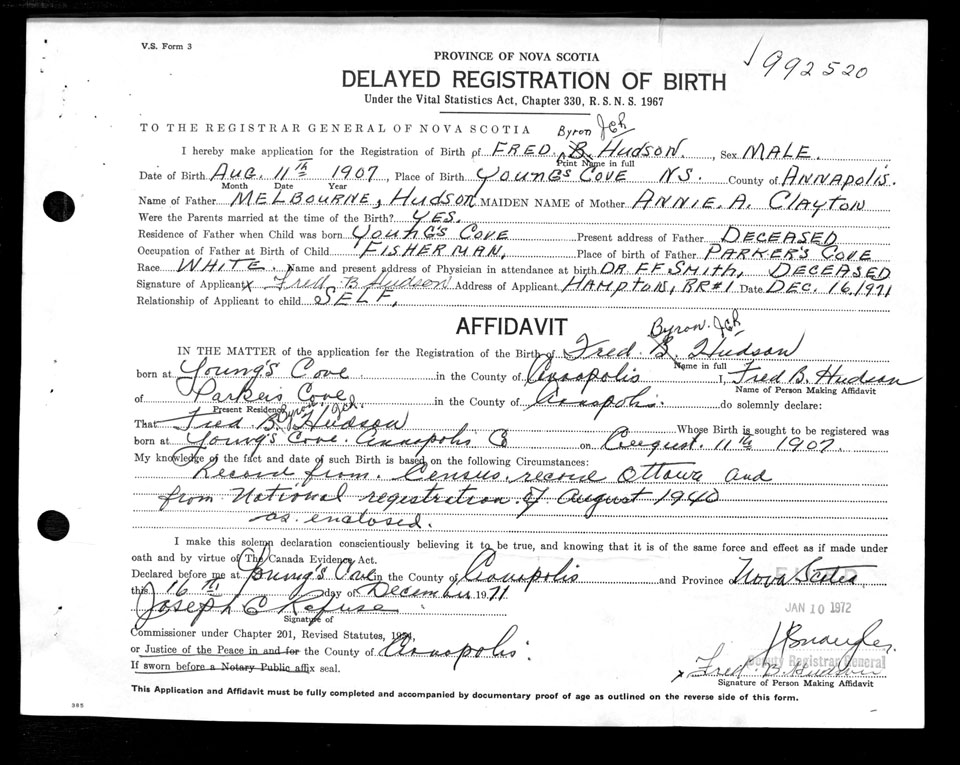 V.S. Form 3
992520
PROVINCE OF NOVA SCOTIA
DELAYED REGISTRATION OF BIRTH
Under the Vital Statistics Act, Chapter 330, R.S.N.S. 1967
TO THE REGISTRAR GENERAL OF NOVA SCOTIA
Byron
I hereby make application for the Registration of Birth of FRED. B. HUDSON. , Sex MALE.
Print Name in full
Date of Birth AUG. 11TH 1907, Place of Birth YOUNG'S COVE N.S. County of ANNAPOLIS.
Month Date Year
Name of Father MELBOURNE, HUDSON MAIDEN NAME of Mother ANNIE. A. CLAYTON
Were the Parents married at the time of the Birth? YES.
Residence of Father when Child was born YOUNG'S COVE Present address of Father DECEASED
Occupation of Father at Birth of Child FISHERMAN, Place of birth of Father PARKER'S COVE
Race WHITE. Name and present address of Physician in attendance at birth DR. F.F. SMITH, DECEASED
Signature of Applicant x Fred B Hudson Address of Applicant HAMPTON, RR#1 Date DEC. 16, 1971
Relationship of Applicant to child SELF,
AFFIDAVIT
Byron.
IN THE MATTER of the application for the Registration of the Birth of Fred. B. Hudson
Name in full
born at Young's Cove in the County of Annapolis I, Fred B. Hudson
Name of Person Making Affidavit
of Parkers Cove in the County of Annapolis. do solemnly declare:
Present Residence
Byron
That Fred B. Hudson Whose Birth is sought to be registered was
born at Young's Cove. Annapolis Co on August. 11th 1907.
My knowledge of the fact and date of such Birth is based on the following Circumstances:
Record from. Census, record Ottawa and
from National registration. of August 1940
as enclosed.
I make this solemn declaration conscientiously believing it to be true, and knowing that it is of the same force and effect as if made under
oath and by virtue of The Canada Evidence Act.
Declared before me at Young's Cove in the County of Annapolis and Province of Nova Scotia,
this 16th day of December 1971
JAN 10 1972
Joseph C
Signature of
Commissioner under Chapter 201, Revised Statutes,
or Justice of the Peace in and for the County of Annapolis.
If sworn before a Notary Public affix seal.
Deputy Registrar General
x Fred B. Hudson
Signature of Person Making Affidavit
This Application and Affidavit must be fully completed and accompanied by documentary proof of age as outlined on the reverse side of this form.
385